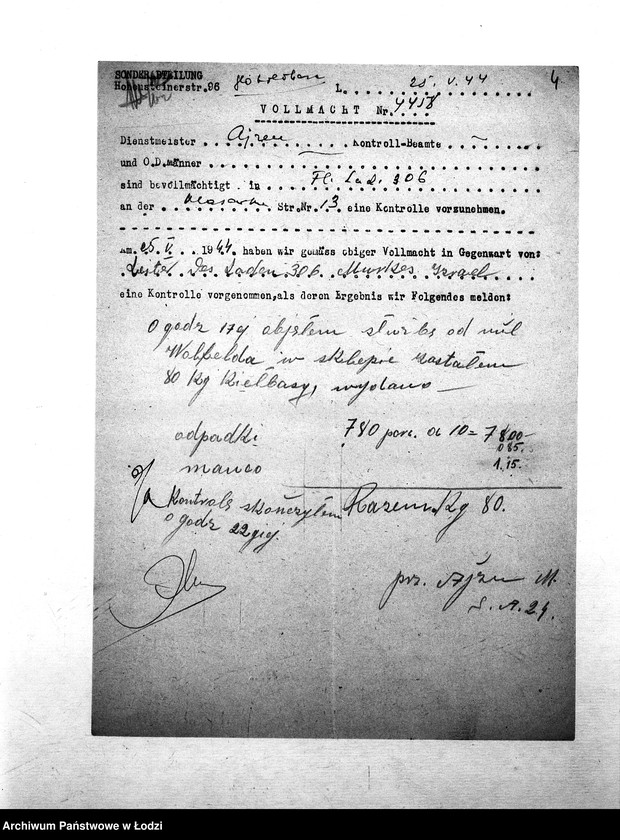 SONDERABTEILUNG
Hohensteinerstr.96 L. 25. V. 44 4
VOLLMACHT Nr. 4458
Dienstmeister Ajzen Kontroll-Beamte —
und O.D.Männer —
sind bevollmächtigt in Fl. Lad. 306
an der Str.Nr. 13 eine Kontrolle vorzunehmen.
Am 25. V. 1944 haben wir gemäss obiger Vollmacht in Gegenwart von:
Leiter Des Laden 306 Israel
eine Kontrolle vorgenommen, als deren Ergebnis wir Folgendes melden:
O godz 17ej objąłem służbę od
w sklepie zastałem
80 Kg Kiełbasy, wydano —
780 porc. a 10 = 7800
odpadki 085.
manco 1.15.
Razem Kg 80.
Kontrolę skończyłem
o godz 22giej
Ajzen M.
S.A.24.
Archiwum Państwowe w Łodzi